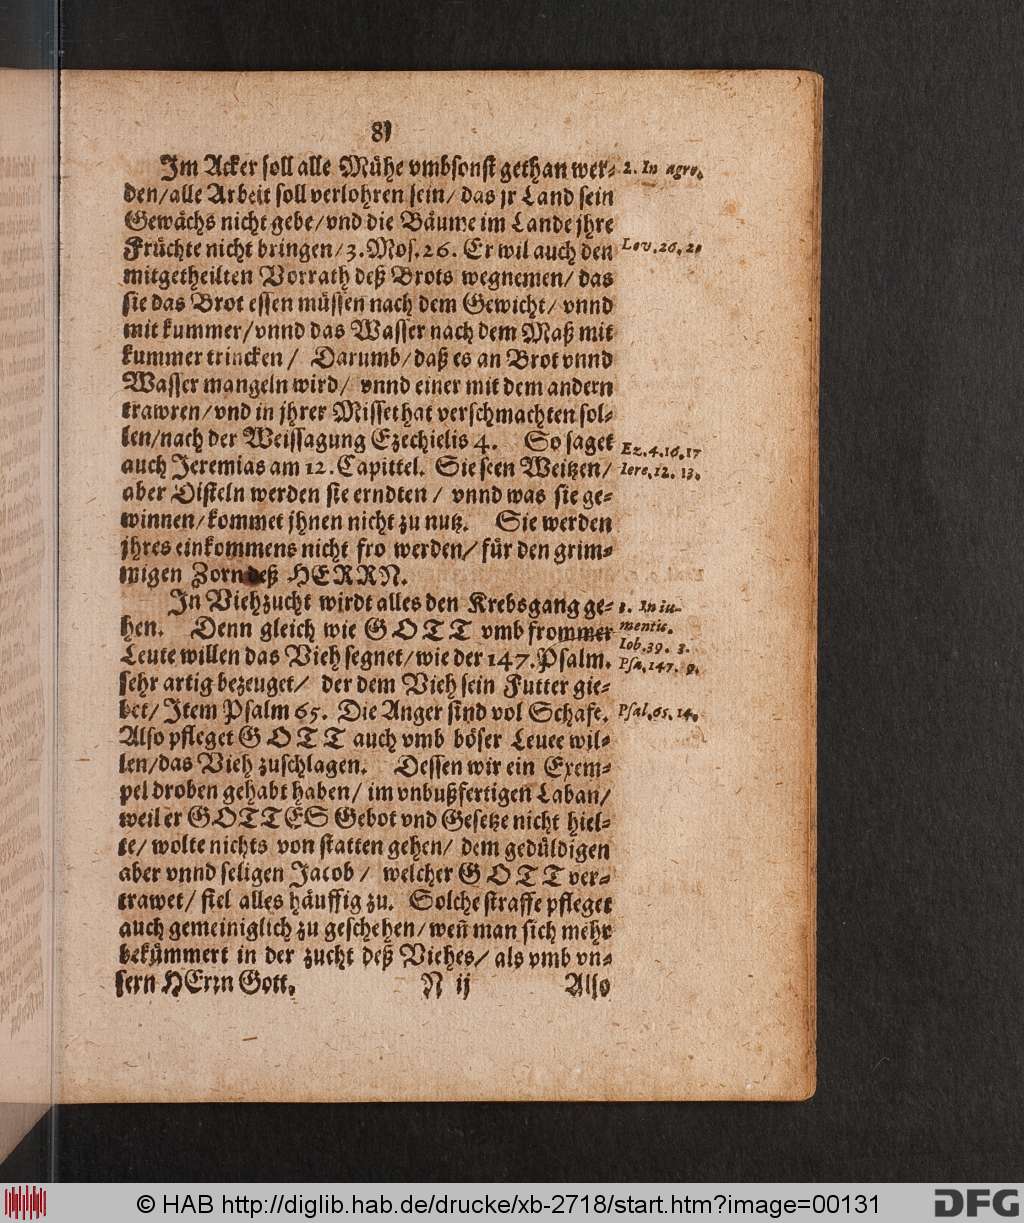 81
Im Acker ſoll alle Mühe vmbſonſt gethan wer⸗ 2. In agro.
den/alle Arbeit ſoll verlohren ſein/ das jr Land ſein
Gewächs nicht gebe/vnd die Bäume im Lande jhre
Früchte nicht bringen/3.Moſ.26. Er wil auch den Lev.26.20
mitgetheilten Vorrath deß Brots wegnemen/ das
ſie das Brot eſſen müſſen nach dem Gewicht/ vnnd
mit kummer/vnnd das Waſſer nach dem Maß mit
kummer trincken/ Darumb/daß es an Brot vnnd
Waſſer mangeln wird/ vnnd einer mit dem andern
trawren/vnd in jhrer Miſſethat verſchmachten ſol⸗
len/nach der Weiſſagung Ezechielis 4. So ſaget Ez.4.16.17
auch Jeremias am 12.Capittel. Sie ſeen Weitzen/ Iere.12. 13.
aber Diſteln werden ſie erndten/ vnnd was ſie ge⸗
winnen/kommet jhnen nicht zu nutz. Sie werden
jhres einkommens nicht fro werden/ für den grim⸗
migen Zorn deß HERRN.
In Viehzucht wirdt alles den Krebsgang ge⸗ In iu-
hen. Denn gleich wie GOTT vmb frommer mentis.
Leute willen das Vieh ſegnet/wie der 147.Pſalm. Iob.39. 3.
ſehr artig bezeuget/ der dem Vieh ſein Futter gie⸗ Pſa.147. 9.
bet/ Item Pſalm 65. Die Anger ſind vol Schafe. Pſal.65.14.
Alſo pfleget GOTT auch vmb böſer Leuee wil⸗
len/das Vieh zuſchlagen. Deſſen wir ein Exem⸗
pel droben gehabt haben/ im vnbußfertigen Laban/
weil er GOTTES Gebot vnd Geſetze nicht hiel⸗
te/ wolte nichts von ſtatten gehen/ dem gedüldigen
aber vnnd ſeligen Jacob/ welcher GOTT ver⸗
trawet/ fiel alles häuffig zu. Solche ſtraffe pfleget
auch gemeiniglich zu geſchehen/ weñ man ſich mehr
bekümmert in der zucht deß Viehes/ als vmb vn⸗
ſern HErrn Gott.
N ij Alſo
© HAB http://diglib.hab.de/drucke/xb-2718/start.htm?image=00131
DFG